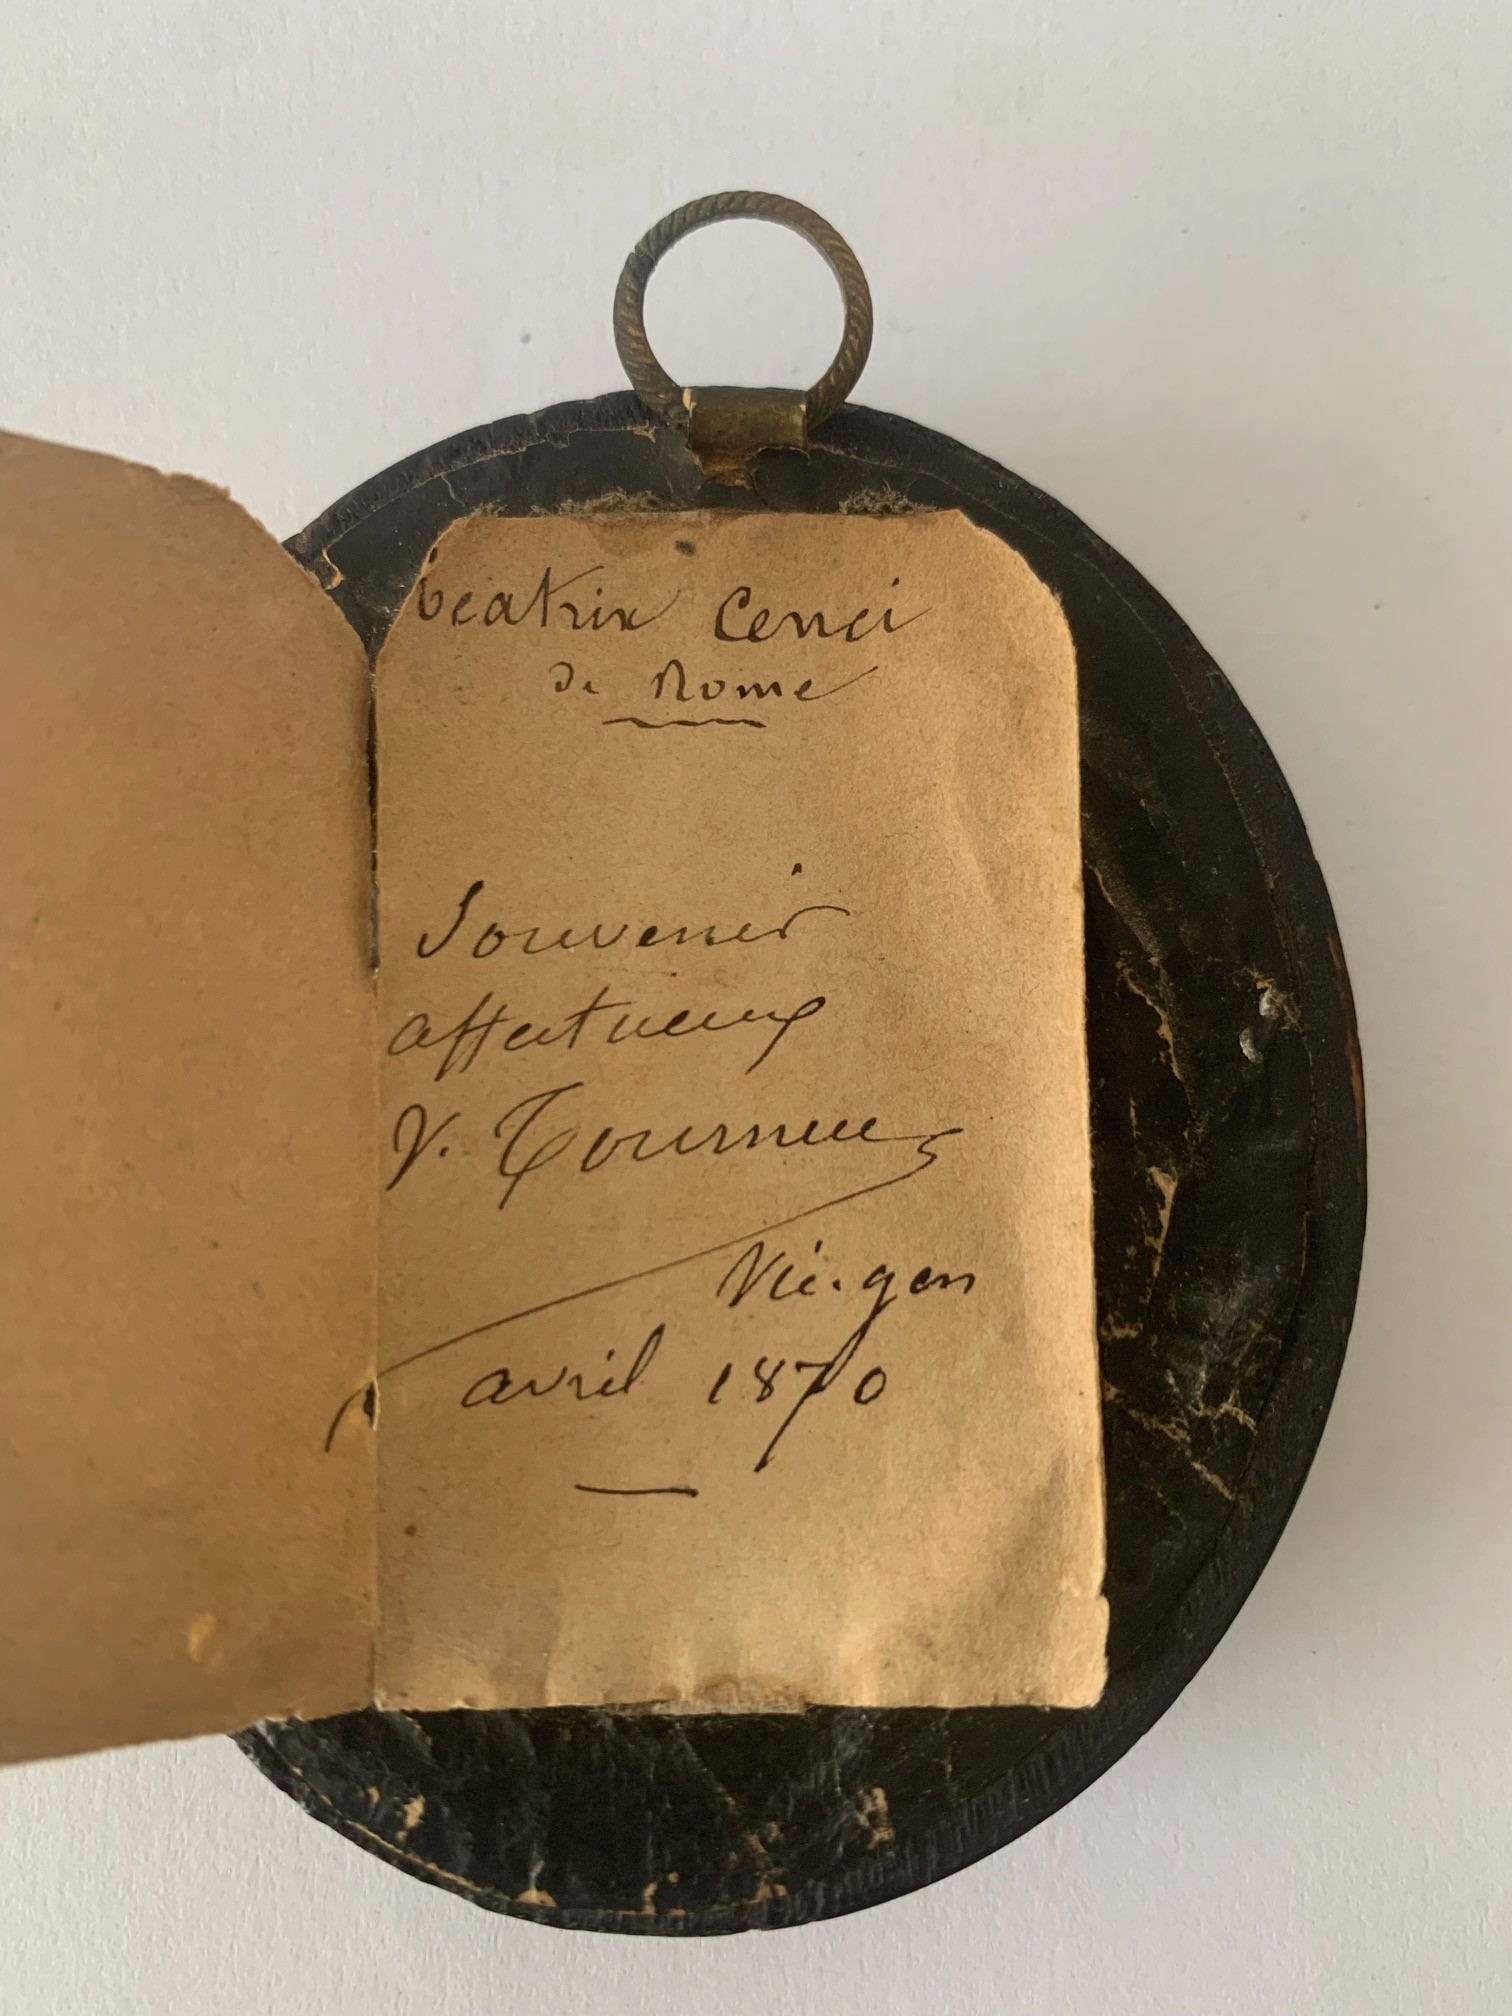 beatrix Cenci
de Rome
Souvenir
affectueux
V. Tourneux
avril 1870